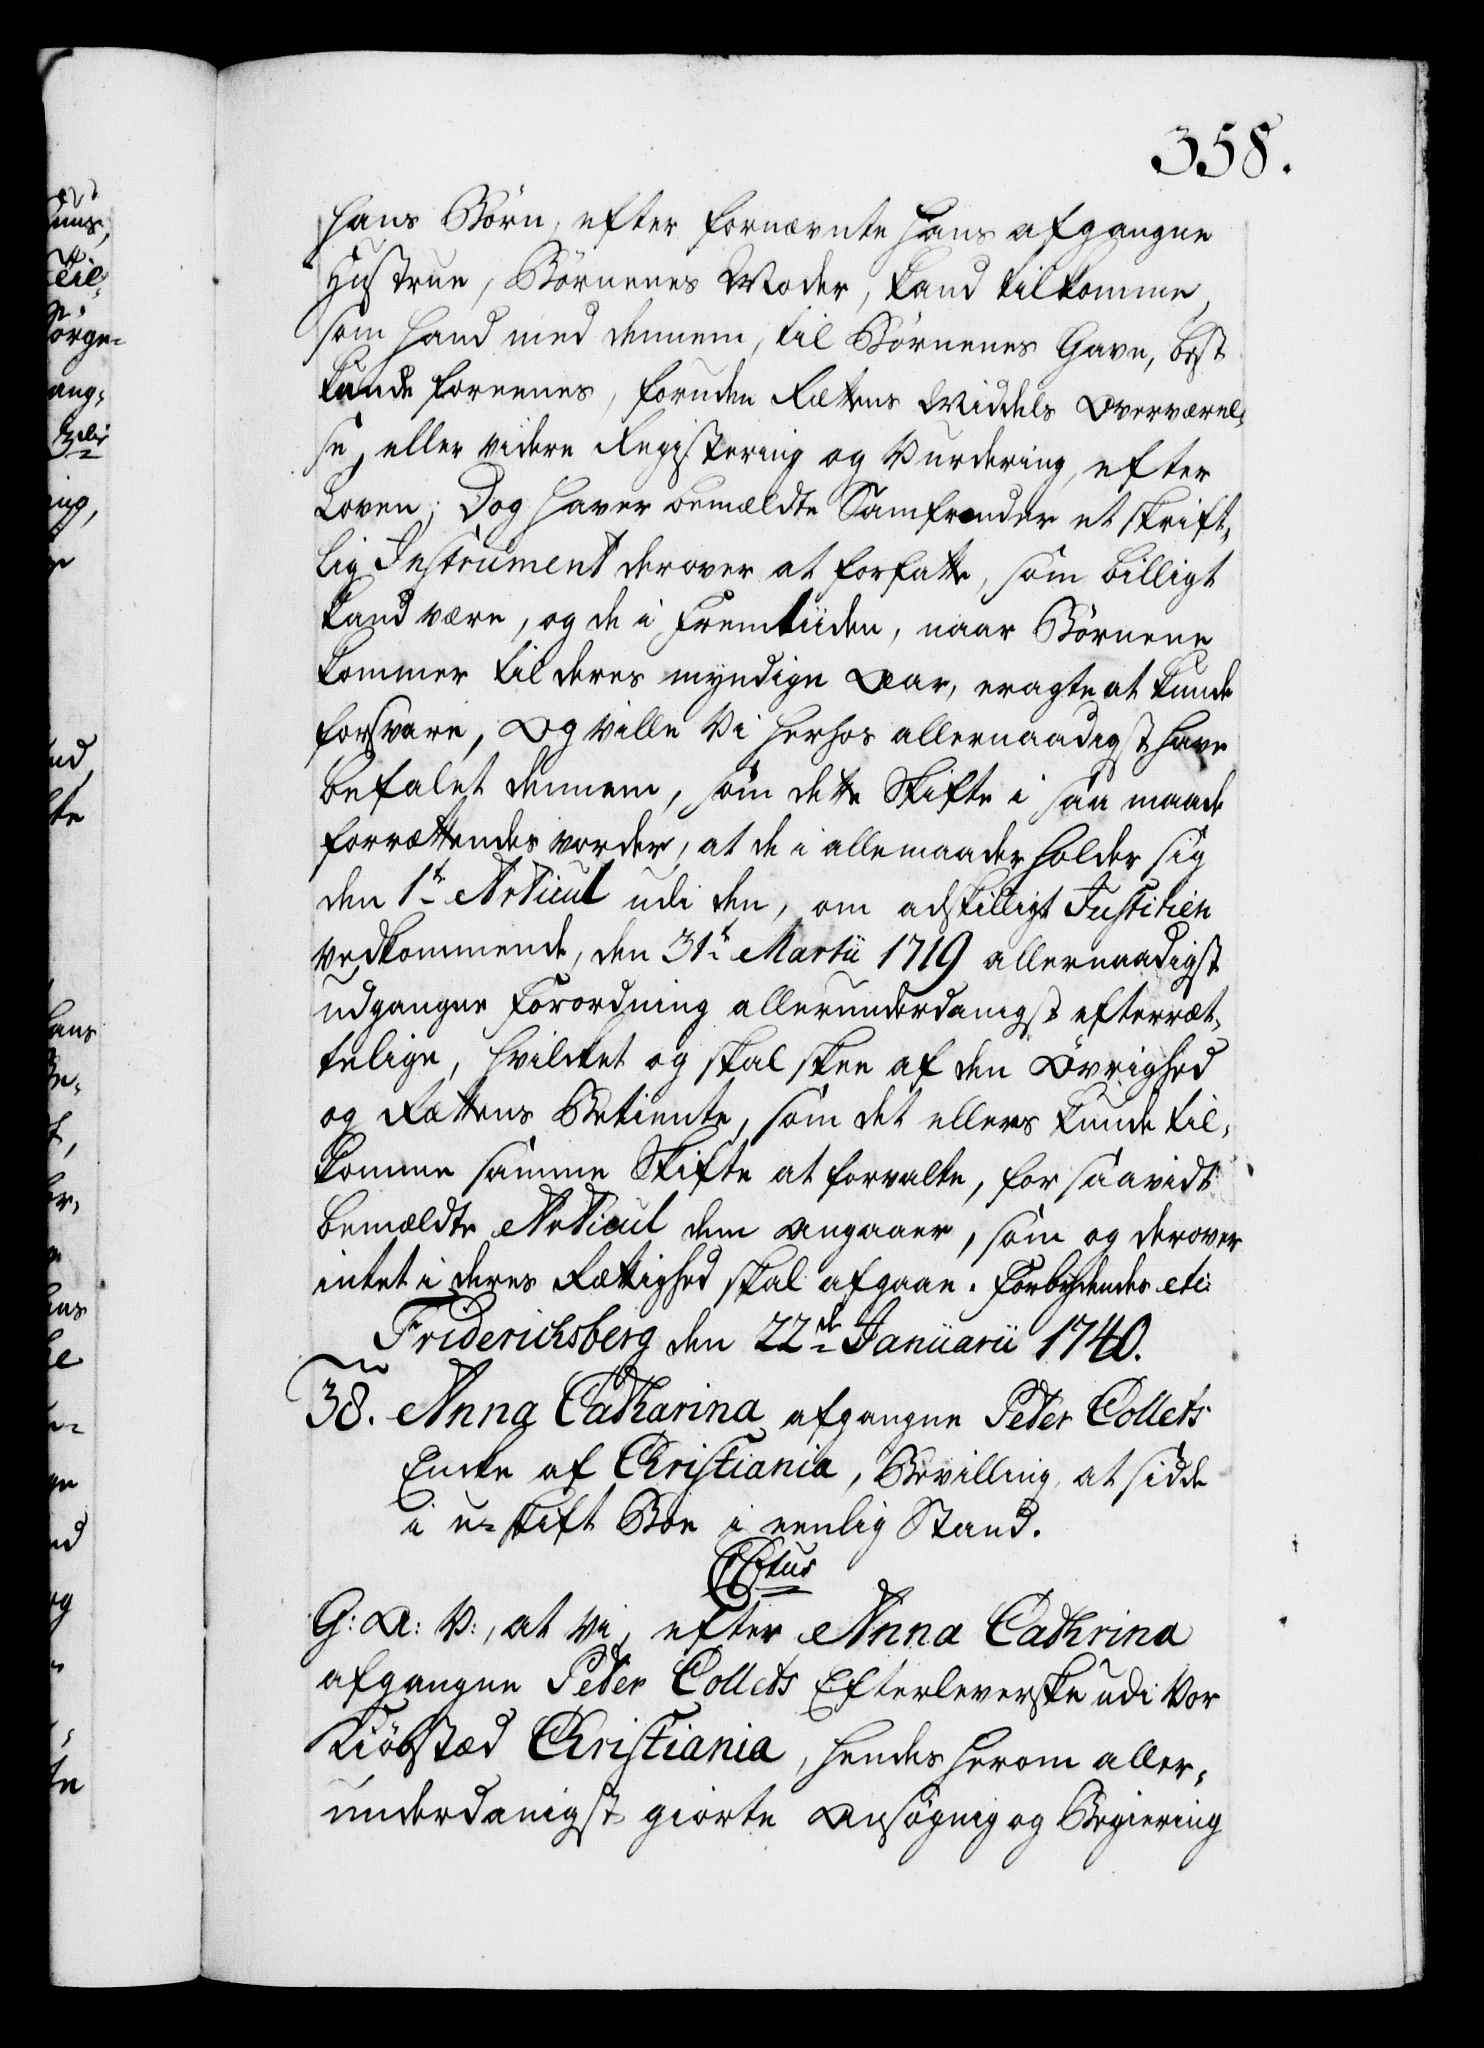 358.
hans Börn, efter fornævnte hans afgangne
Hustrue, Börnenes Moder, kand tilkomme,
som hand med dennem, til Börnenes Gavn, best
kunde foreenes, foruden Rættens Middels Overværel-
se, eller videre Registering og Vurdering, efter
Loven; Dog haver bemældte Samfrender et skrift-
lig Instrument derover at forfatte, som billigt
kand være, og de i Fremtiiden, naar Börnene
kommer til deres myndige Aar, eragte at kunde
forsvare, Og ville Vi herhos allernaadigst have
befalet dennem, som dette Skifte i saa maade
forrettendes vorder, at de i alle maader holder sig
den 1te Articul udi den, om adskilligt Justitien
vedkommende, den 31te Martii 1719 allernaadigst
udgangne Forordning allerunderdanigst efterræt-
telige, hvilcket og skal skee af den Övrighed
og Rettens Betiente, som det ellers kunde til-
komme samme Skifte at forvalte, for saavidt
bemældte Articul dem angaaer, som og derover
intet i deres Rettighed skal afgaae. Forbydendes etc:
Friderichsberg den 22de Januarii 1740.
38. Anna Catharina afgangne Peter Collets
Encke af Christiania, Bevilling, at sidde
i u-skift Boe i eenlig Stand.
CCtus
G: A: V:, at Vi, efter Anna Cathrina
afgangne Peter Collets Efterleverske udi Vor
Kiöbstæd Christiania, hendes herom aller-
underdanigst giorte Ansøgnig og Begiering